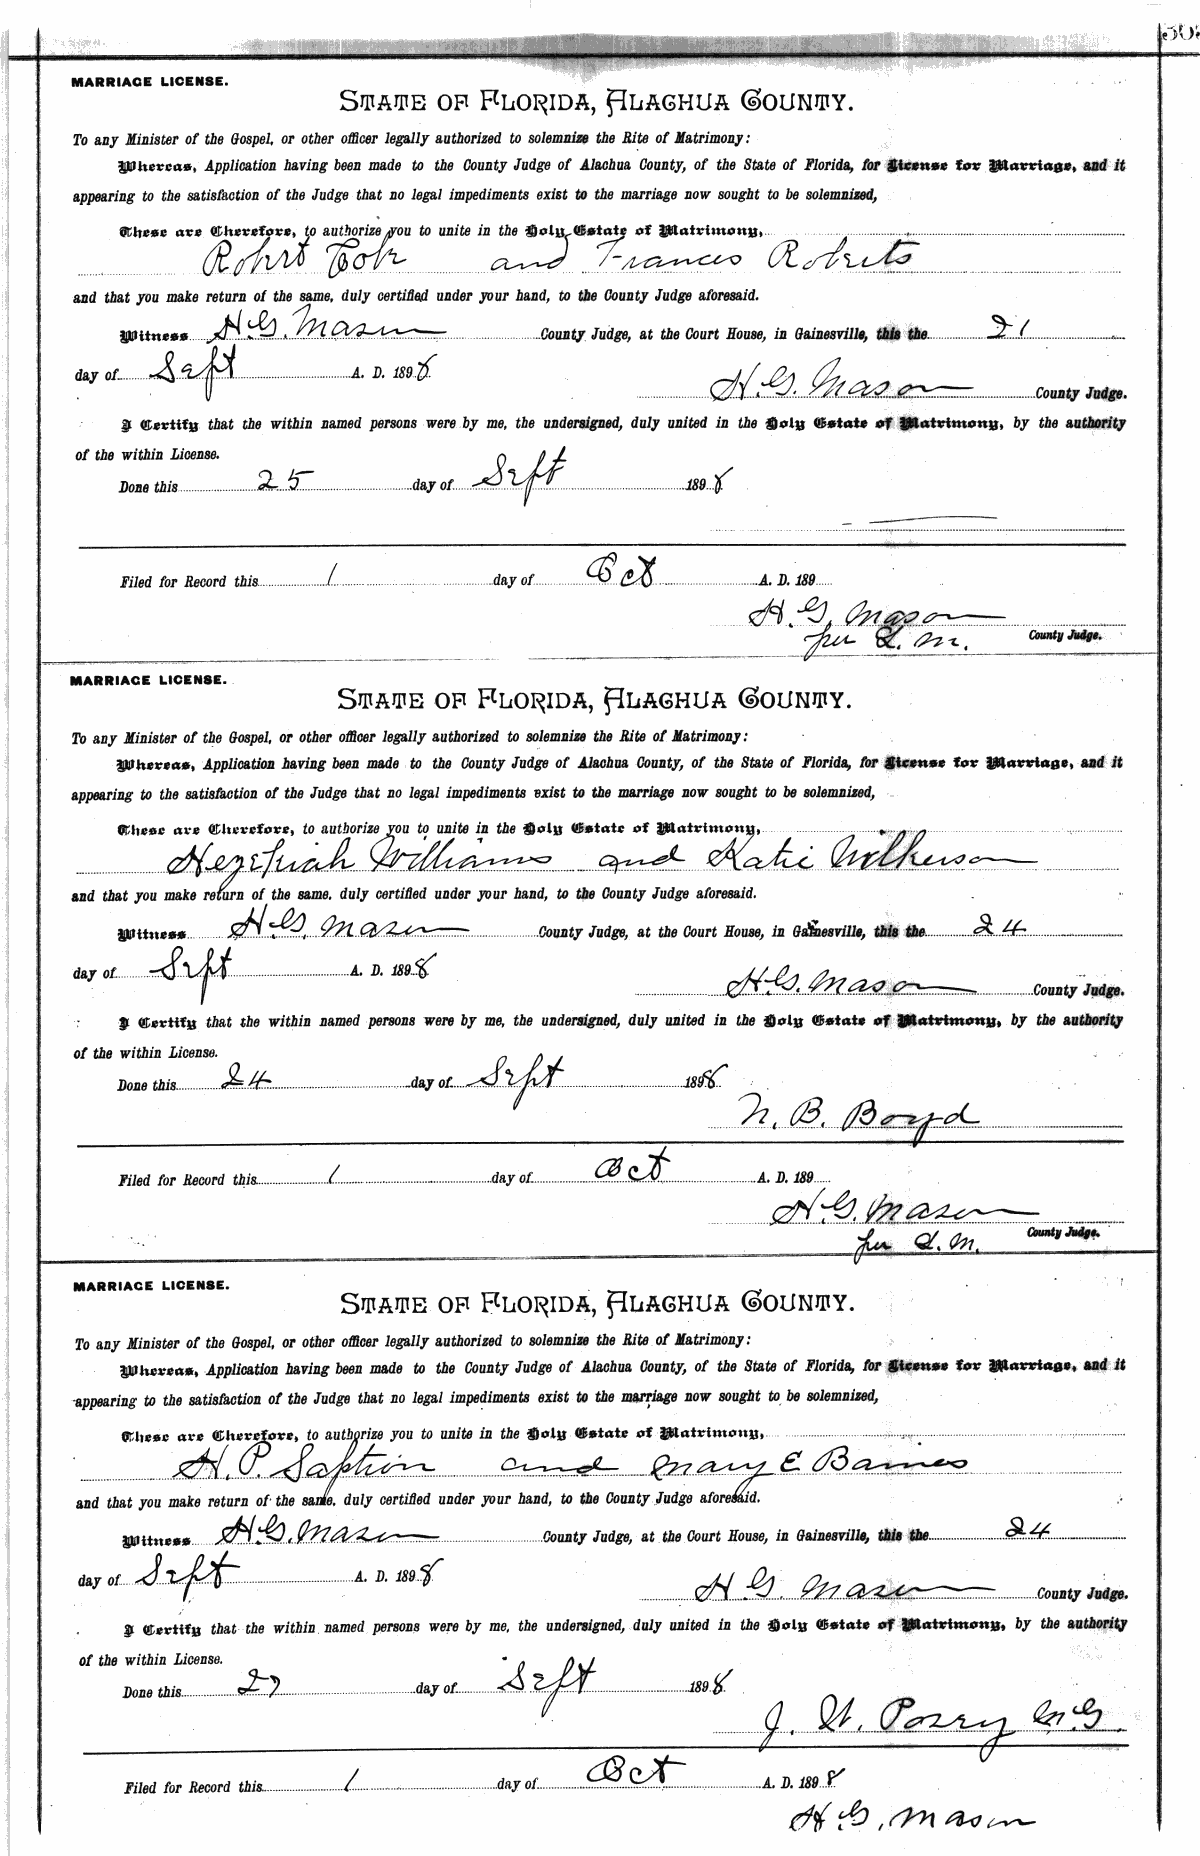 MARRIAGE LICENSE.
STATE OF FLORIDA, ALACHUA COUNTY.
To any Minister of the Gospel, or other officer legally authorized to solemnize the Rite of Matrimony:
Whereas, Application having been made to the County Judge of Alachua County, of the State of Florida, for License for Marriage, and it
appearing to the satisfaction of the Judge that no legal impediments exist to the marriage now sought to be solemnized,
These are Therefore, to authorize you to unite in the Holy Estate of Matrimony,
Robert and Frances Roberts
and that you make return of the same, duly certified under your hand, to the County Judge aforesaid.
Witness H.G. Mason County Judge, at the Court House, in Gainesville, this the 21
day of Sept A. D. 1898
H. G. Mason County Judge.
I Certify that the within named persons were by me, the undersigned, duly united in the Holy Estate of Matrimony, by the authority
of the within License.
Done this 25 day of Sept 1898
Filed for Record this 1 day of Oct A. D. 189
H. G. Mason
per L. M. County Judge.
MARRIAGE LICENSE.
STATE OF FLORIDA, ALACHUA COUNTY.
To any Minister of the Gospel, or other officer legally authorized to solemnize the Rite of Matrimony:
Whereas, Application having been made to the County Judge of Alachua County, of the State of Florida, for License for Marriage, and it
appearing to the satisfaction of the Judge that no legal impediments exist to the marriage now sought to be solemnized,
These are Therefore, to authorize you to unite in the Holy Estate of Matrimony,
Hezekiah Williams and Katie Wilkerson
and that you make return of the same, duly certified under your hand, to the County Judge aforesaid.
Witness H.G. Mason County Judge, at the Court House, in Gainesville, this the 24
day of Sept A. D. 1898
H.G. Mason County Judge.
I Certify that the within named persons were by me, the undersigned, duly united in the Holy Estate of Matrimony, by the authority
of the within License.
Done this 24 day of Sept 1898
N. B. Boyd
Filed for Record this 1 day of Oct A. D. 189
H.G. Mason
per L. M. County Judge.
MARRIAGE LICENSE.
STATE OF FLORIDA, ALACHUA COUNTY.
To any Minister of the Gospel, or other officer legally authorized to solemnize the Rite of Matrimony:
Whereas, Application having been made to the County Judge of Alachua County, of the State of Florida, for License for Marriage, and it
appearing to the satisfaction of the Judge that no legal impediments exist to the marriage now sought to be solemnized,
These are Therefore, to authorize you to unite in the Holy Estate of Matrimony,
H. P. and Mary E
and that you make return of the same, duly certified under your hand, to the County Judge aforesaid.
Witness H.G. Mason County Judge, at the Court House, in Gainesville, this the 24
day of Sept A. D. 1898
H G. Mason County Judge.
I Certify that the within named persons were by me, the undersigned, duly united in the Holy Estate of Matrimony, by the authority
of the within License.
Done this 27 day of Sept 1898
J. W. Posey M.G.
Filed for Record this 1 day of Oct A. D. 1898
H G. Mason